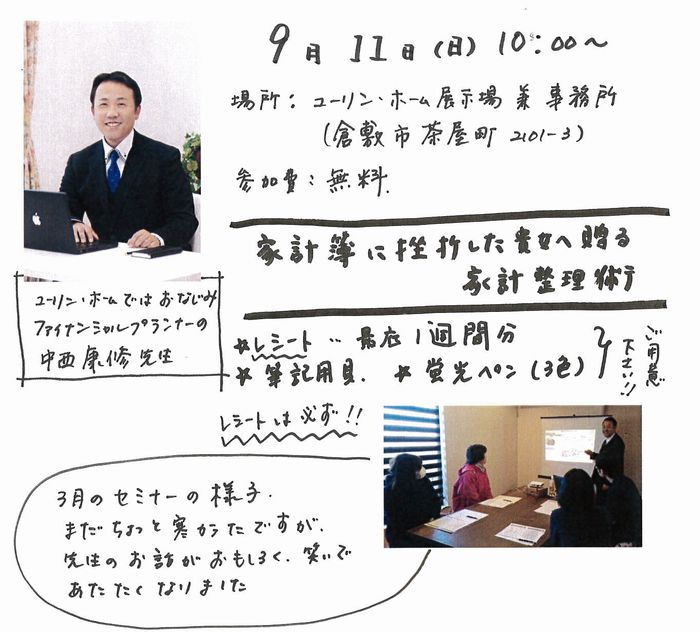 9月 11日(日) 10:00〜
場所: ユーリン・ホーム展示場 兼 事務所
(倉敷市茶屋町 2101-3)
参加費:無料.
家計簿に挫折した貴女へ贈る
家計整理術
ユーリン・ホームではおなじみ
ファイナンシャルプランナーの
中西康修先生
☆レシート‥最低1週間分
☆筆記用具. ☆蛍光ペン(3色)
ご用意
下さい!!
レシートは必ず!!
3月のセミナーの様子.
まだちょっと寒かったですが.
先生のお話がおもしろく、笑いで
あたたくなりました